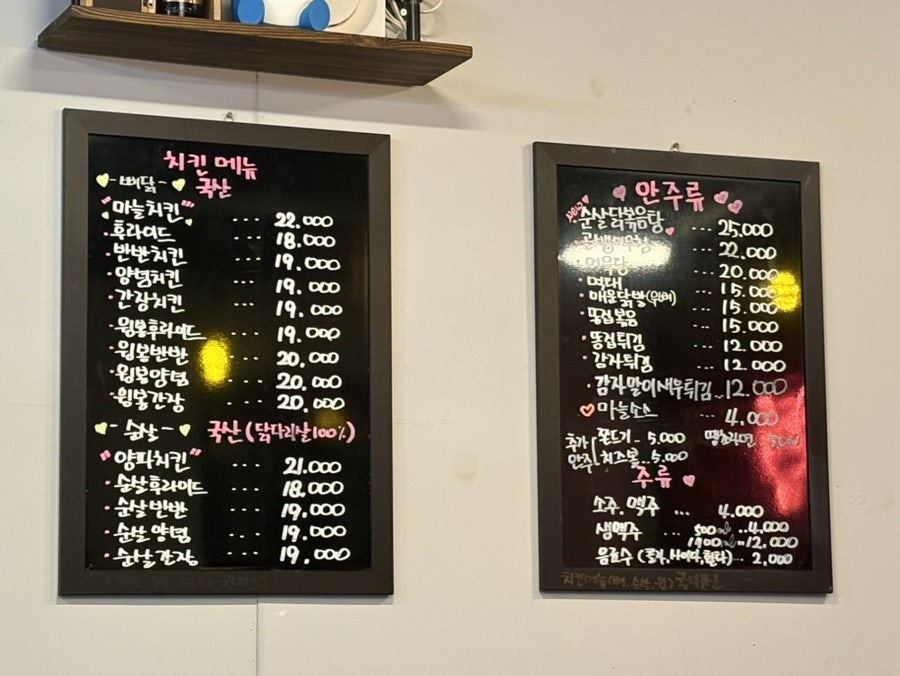 치킨 메뉴
-뼈닭- 국산
"마늘치킨" ... 22.000
·후라이드 ... 18.000
·반반치킨 ... 19.000
·양념치킨 ... 19.000
·간장치킨 ... 19.000
·윙봉후라이드 ... 19.000
·윙봉반반 ... 20.000
·윙봉양념 ... 20.000
·윙봉간장 ... 20.000
-순살- 국산(닭다리살100%)
"양파치킨" ... 21.000
·순살후라이드 ... 18.000
·순살반반 ... 19.000
·순살양념 ... 19.000
·순살간장 ... 19.000
안주류
순살닭볶음탕 ... 25.000
22.000
20.000
·먹태 ... 15.000
·매운닭발(무뼈) ... 15.000
·똥집볶음 ... 15.000
·똥집튀김 ... 12.000
·감자튀김 ... 12.000
·감자말이새우튀김 .. 12.000
마늘소스 ... 4.000
추가안주 쫀드기 - 5.000
치즈볼 .. 5.000
주류
소주. 맥주 ... 4.000
생맥주 ... 500ml .. 4.000
1900ml .. 12.000
음료수 (콜라,사이다,환타) .. 2,000